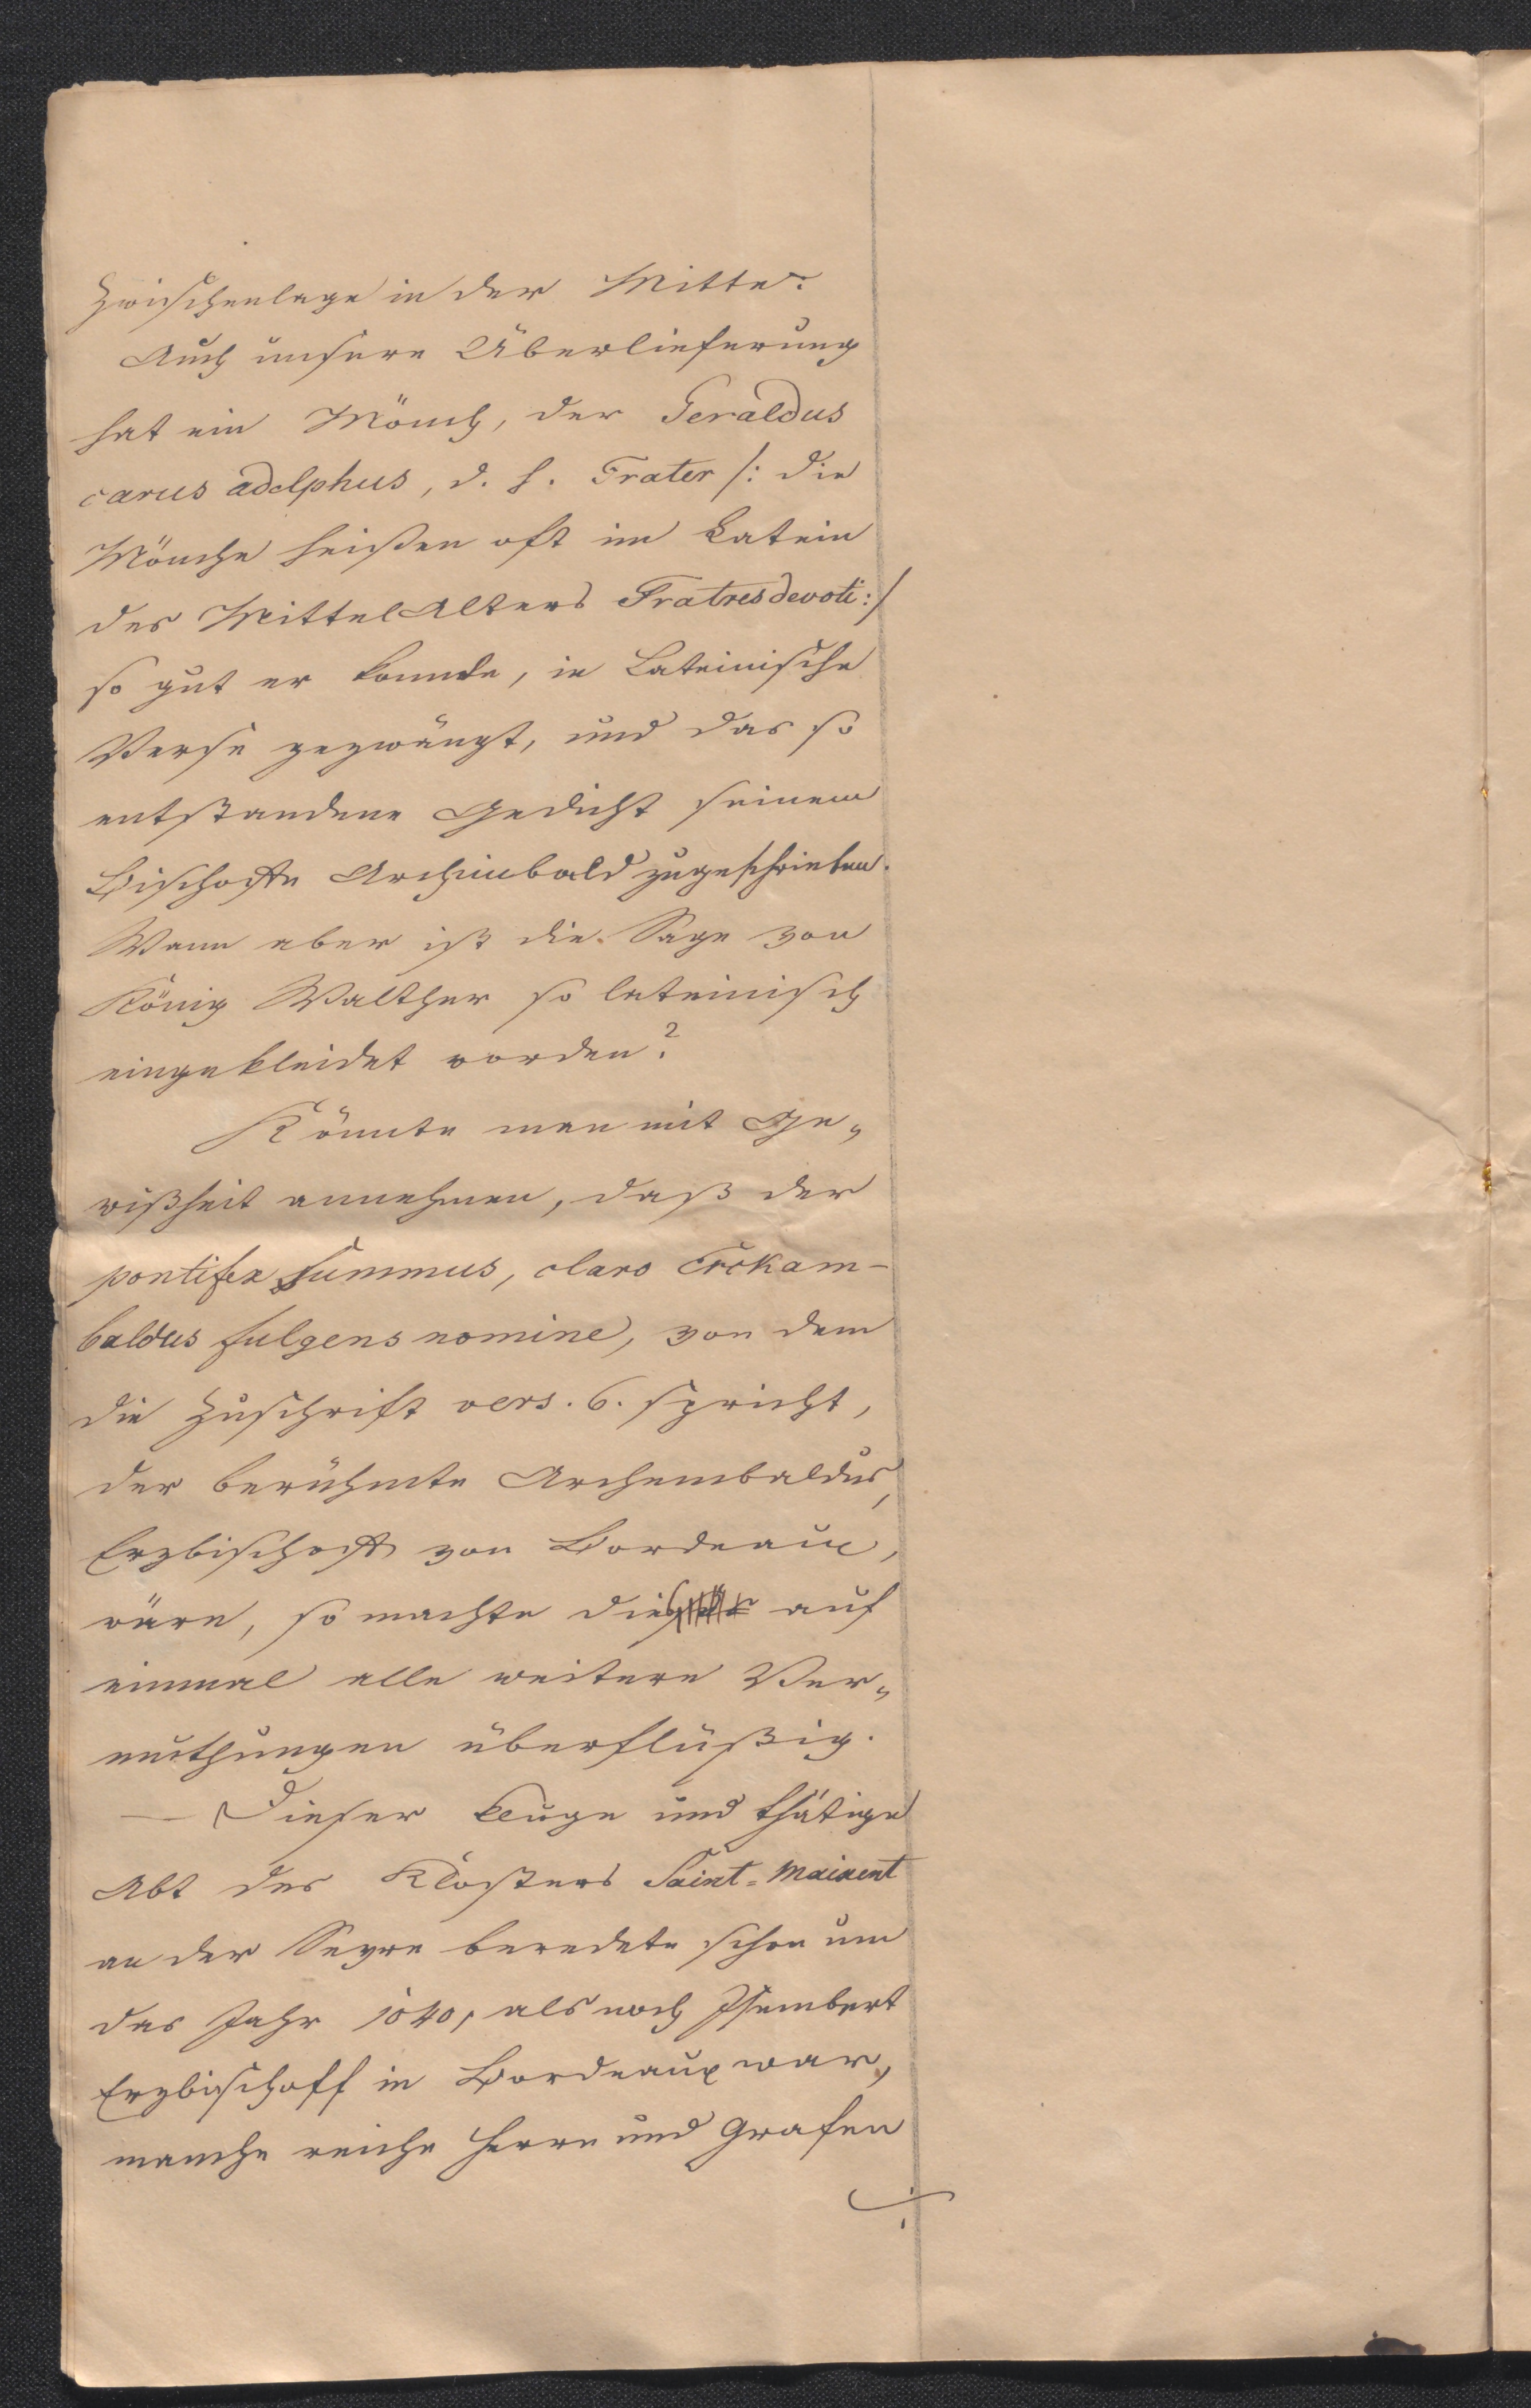 Zwischenlage in der Mitte.
Auch unsere Überlieferung
hat ein Mönch, der Geraldus
carus adelphus, d. h. Frater /: die
Mönche heißen oft im Latein
des MittelAlters Fratres devoti :/
so gut er konnte, in Lateinische
Verse gezwängt, und das so
entstandene Gedicht seinem
Bischoffe Archimbald zugeschrieben.
Wann aber ist die Sage von
König Walther so lateinisch
eingekleidet worden?
Könnte man mit Ge„
wißheit annehmen, daß der
pontifex summus, claro Erckam-
baldus fulgens nomine, von dem
die Zuschrift vers. 6. spricht,
der berühmte Archembaldus,
Erzbischoff von Bordeaux,
wäre, so machte dieß auf
einmal alle weitere Ver„
muthungen überflüßig.
— Dieser kluge und thätige
Abt des Klosters Saint=Maixent
an der Sevre beredete schon um
das Jahr 1040, als noch Isembert
Erzbischoff in Bordeaux war,
manche reiche Herrn und Grafen